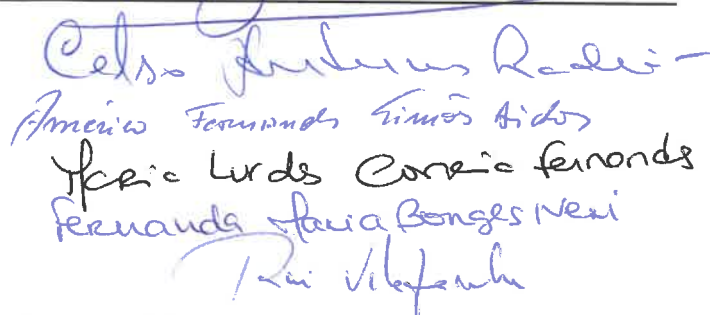 Celso Antunes
Américo Fernando Simões Aidos
Maria Lurds Correia Fernands
Fernanda Maria Borges Neri
Rui